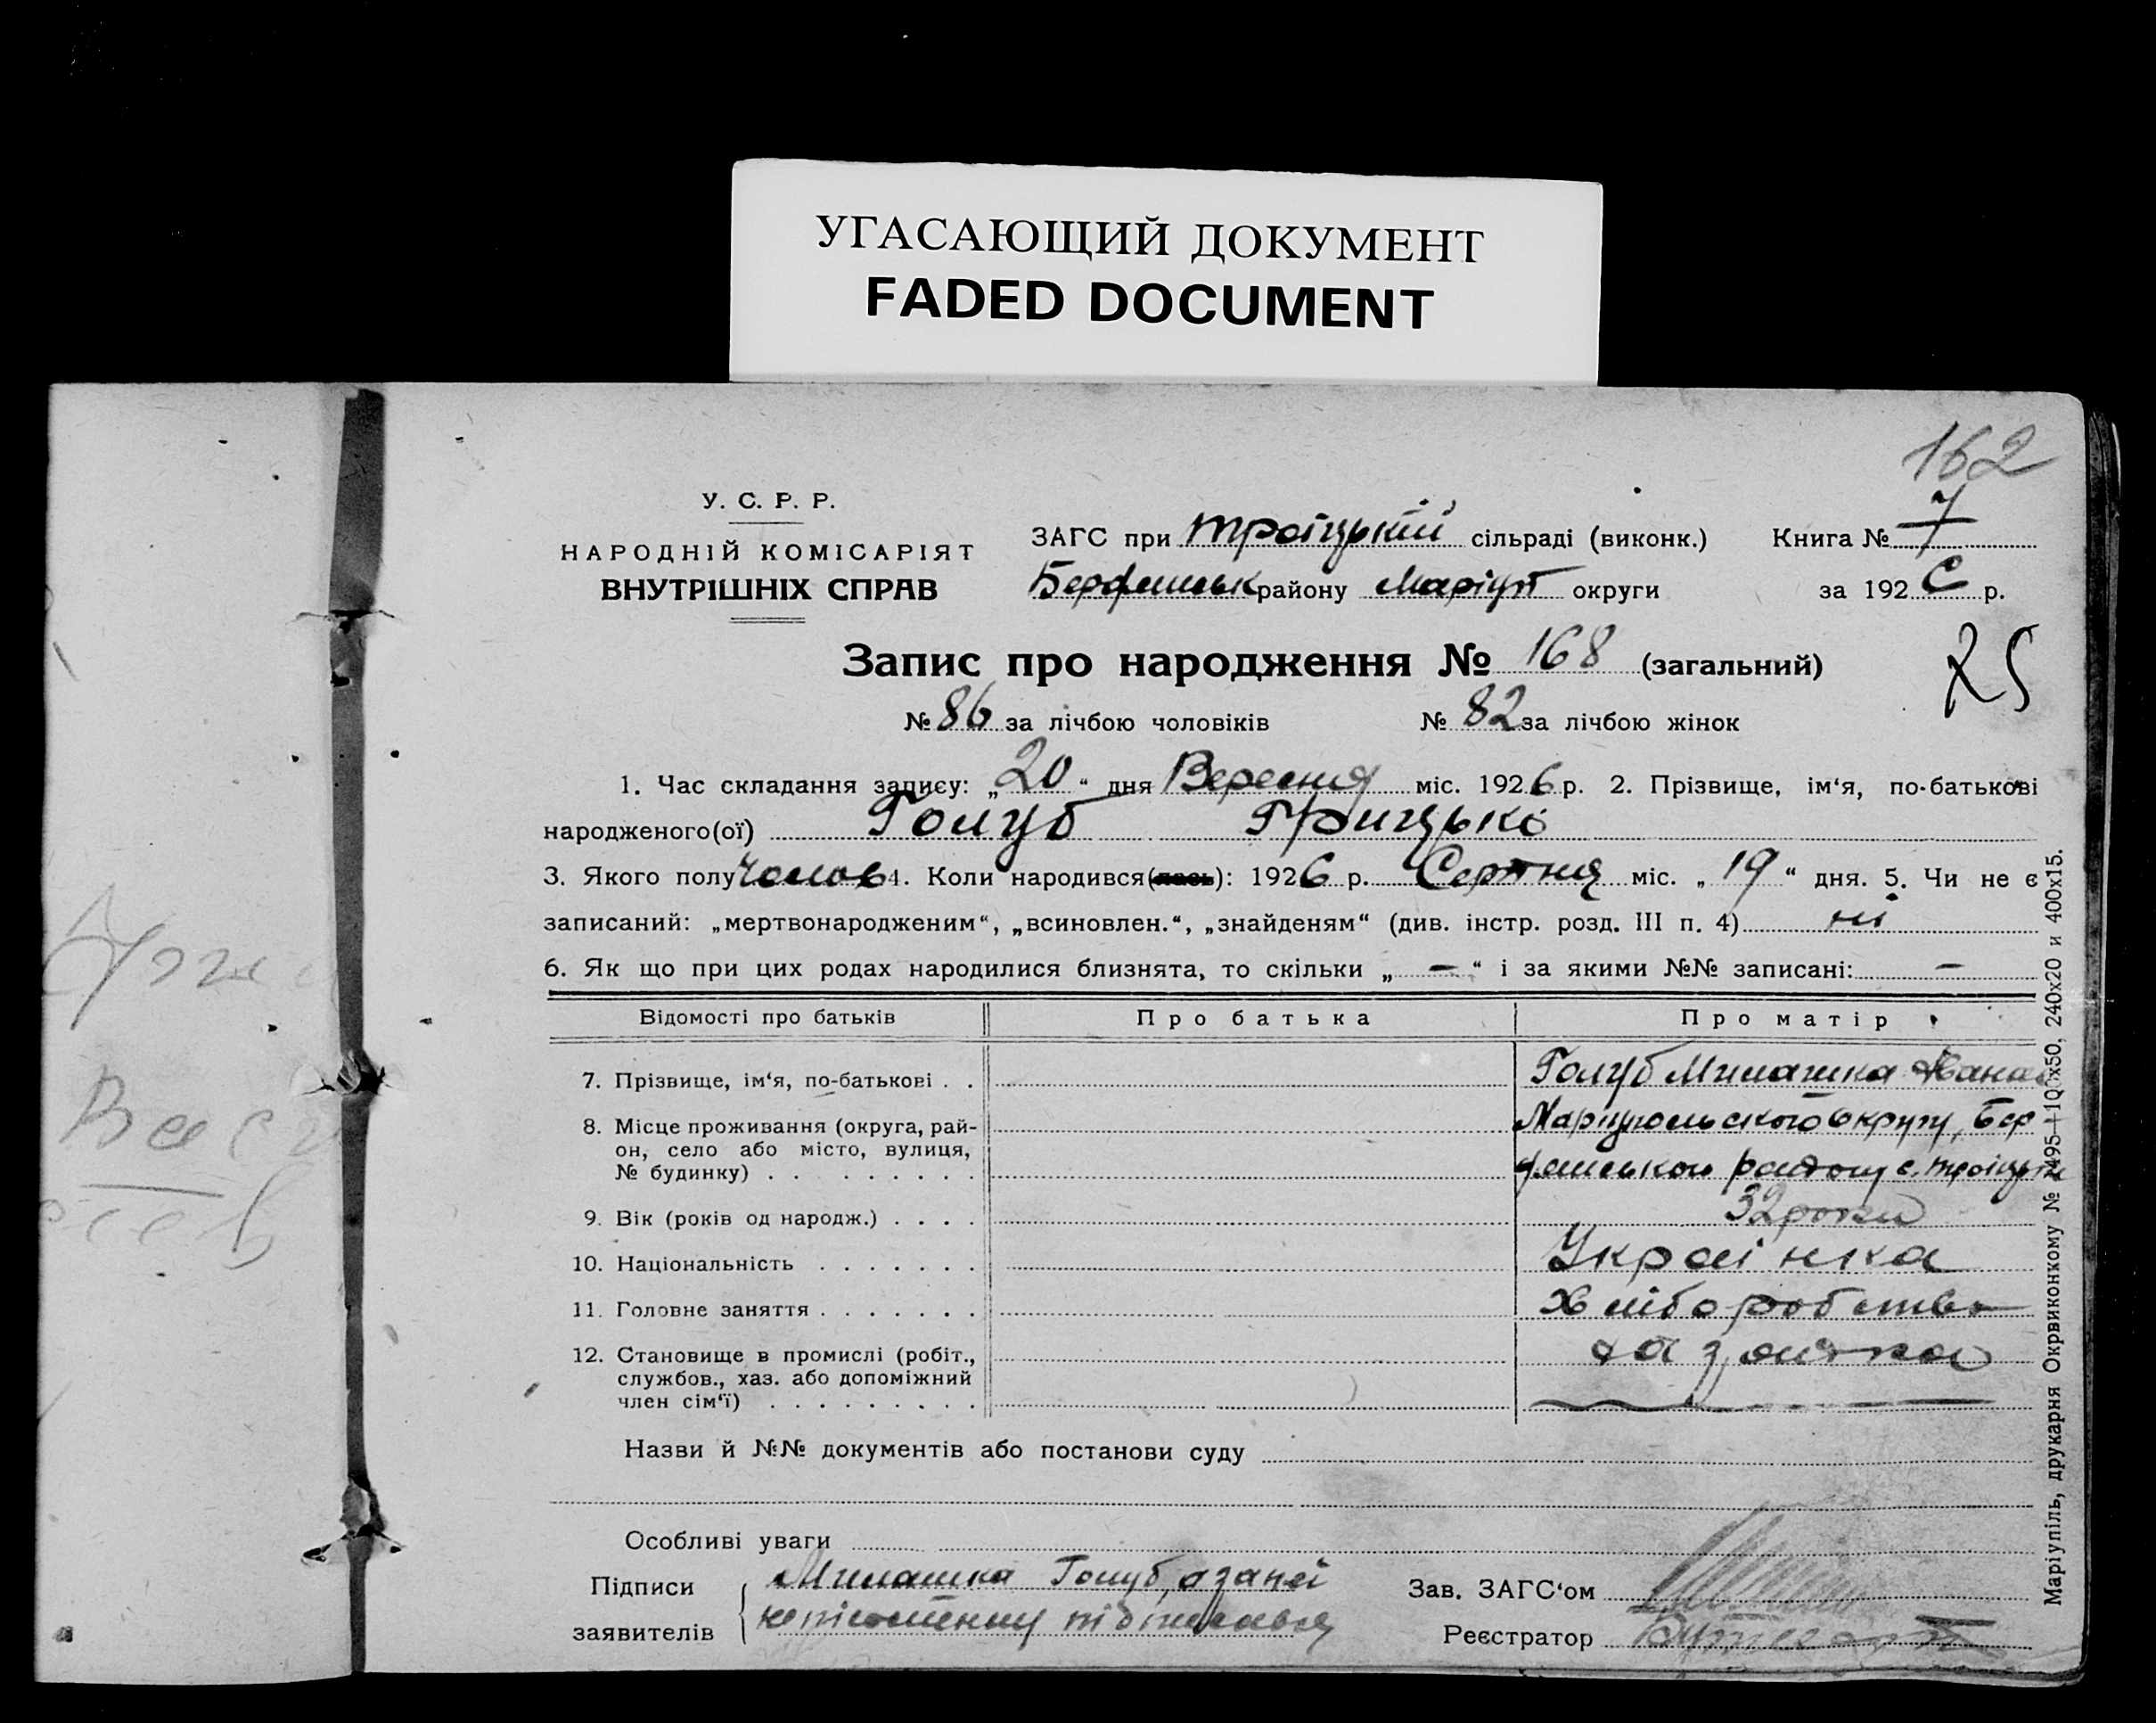 УГАСАЮЩИЙ ДОКУМЕНТ
FADED DOCUMENT
162
У. С. Р. Р.
НАРОДНІЙ КОМІСАРІЯТ
ВНУТРІШНІХ СПРАВ
ЗАГС при Троїцькій сільраді (виконк.) Книга № 7
району Маріуп округи за 192 р.
Запис про народження № 168 (загальний)
25
№ 86 за лічбою чоловіків № 82 за лічбою жінок
1. Час складання запису: „20“ дня Вересня міс. 1926 р. 2. Прізвище, ім‘я, по-батькові
народженого(ої) Голуб Грицько
3. Якого полу Чолов 4. Коли народився(лась): 1926 р. Серпня міс. „19“ дня. 5. Чи не є
записаний: „мертвонародженим“, „всиновлен.“, „знайденям“ (див. інстр. розд. III п. 4) ні
6. Як що при цих родах народилися близнята, то скільки „ — “ і за якими №№ записані: —
Відомості про батьків Про батька Про матір
7. Прізвище, ім‘я, по-батькові . . Голуб Милашка
8. Місце проживання (округа, рай- Маріупольського округу,
он, село або місто, вулиця,
№ будинку) . . . . . . . . . району с.
9. Вік (років од народж.) . . . . 32 роки
10. Національність . . . . . . . Українка
11. Головне заняття . . . . . . . Хліборобство
12. Становище в промислі (робіт., хазяйка
службов., хаз. або допоміжний
член сім‘ї) . . . . . . . . .
Назви й №№ документів або постанови суду
Особливі уваги
Підписи Милашка Голуб, а за неї
заявителів неписьменну підписався
Зав. ЗАГС‘ом
Реєстратор
Маріупіль, друкарня Окрвиконкому № 1495—100х50, 240х20 и 400х15.